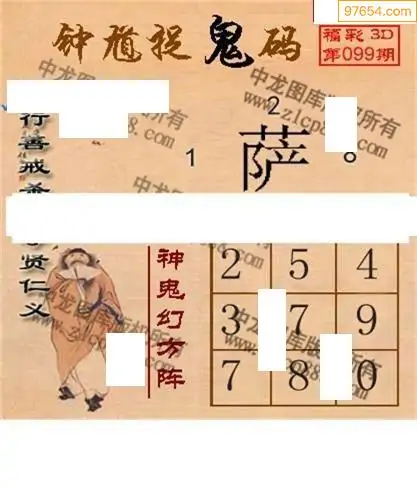 97654.com
钟馗捉鬼码
福彩3D
第099期
中龙图库版权所有
行善戒
贤仁义
2
1
萨。
神鬼幻方阵
2 5 4
3 7 9
7 8 0